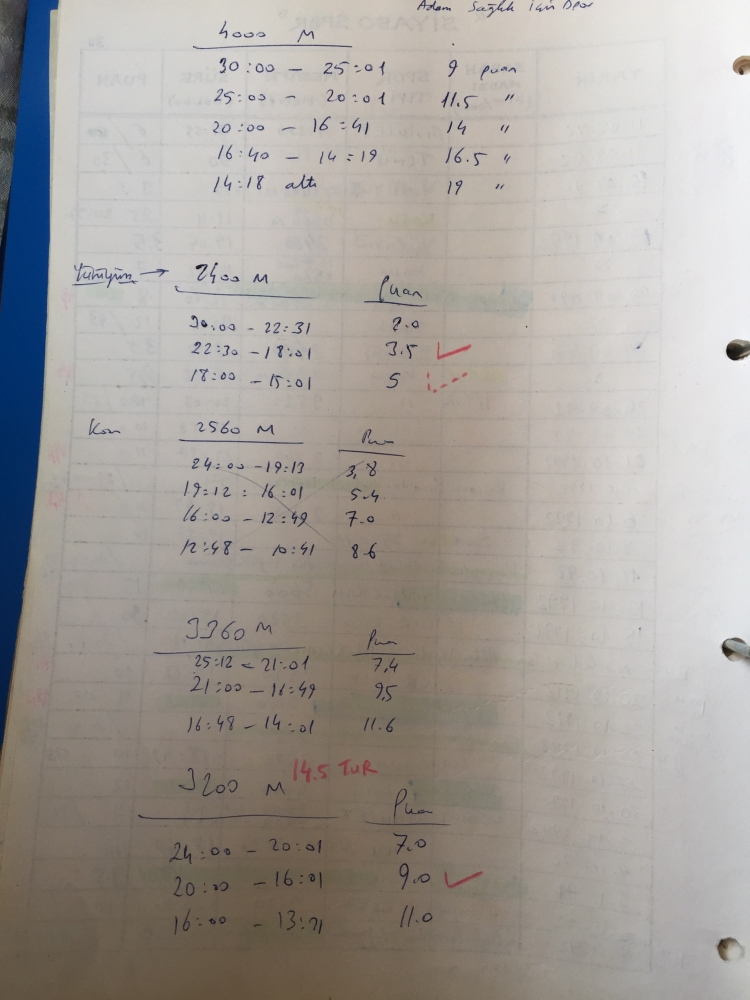 Adam Sağlık İçin Spor
4000 M
30:00 – 25:01 9 puan
25:00 – 20:01 11.5 "
20:00 – 16:41 14 "
16:40 – 14:19 16.5 "
14:18 altı 19 "
Yürüyüş → 2400 M Puan
30:00 – 22:31 2.0
22:30 – 18:01 3.5
18:00 – 15:01 5
Koşu 2560 M Puan
24:00 – 19:13 3,8
19:12 : 16:01 5.4
16:00 – 12:49 7.0
12:48 – 10:41 8.6
3360 M Puan
25:12 – 21:01 7,4
21:00 – 16:49 9,5
16:48 – 14:01 11.6
3200 M 14.5 TUR Puan
24:00 – 20:01 7.0
20:00 – 16:01 9.0
16:00 – 13:21 11.0